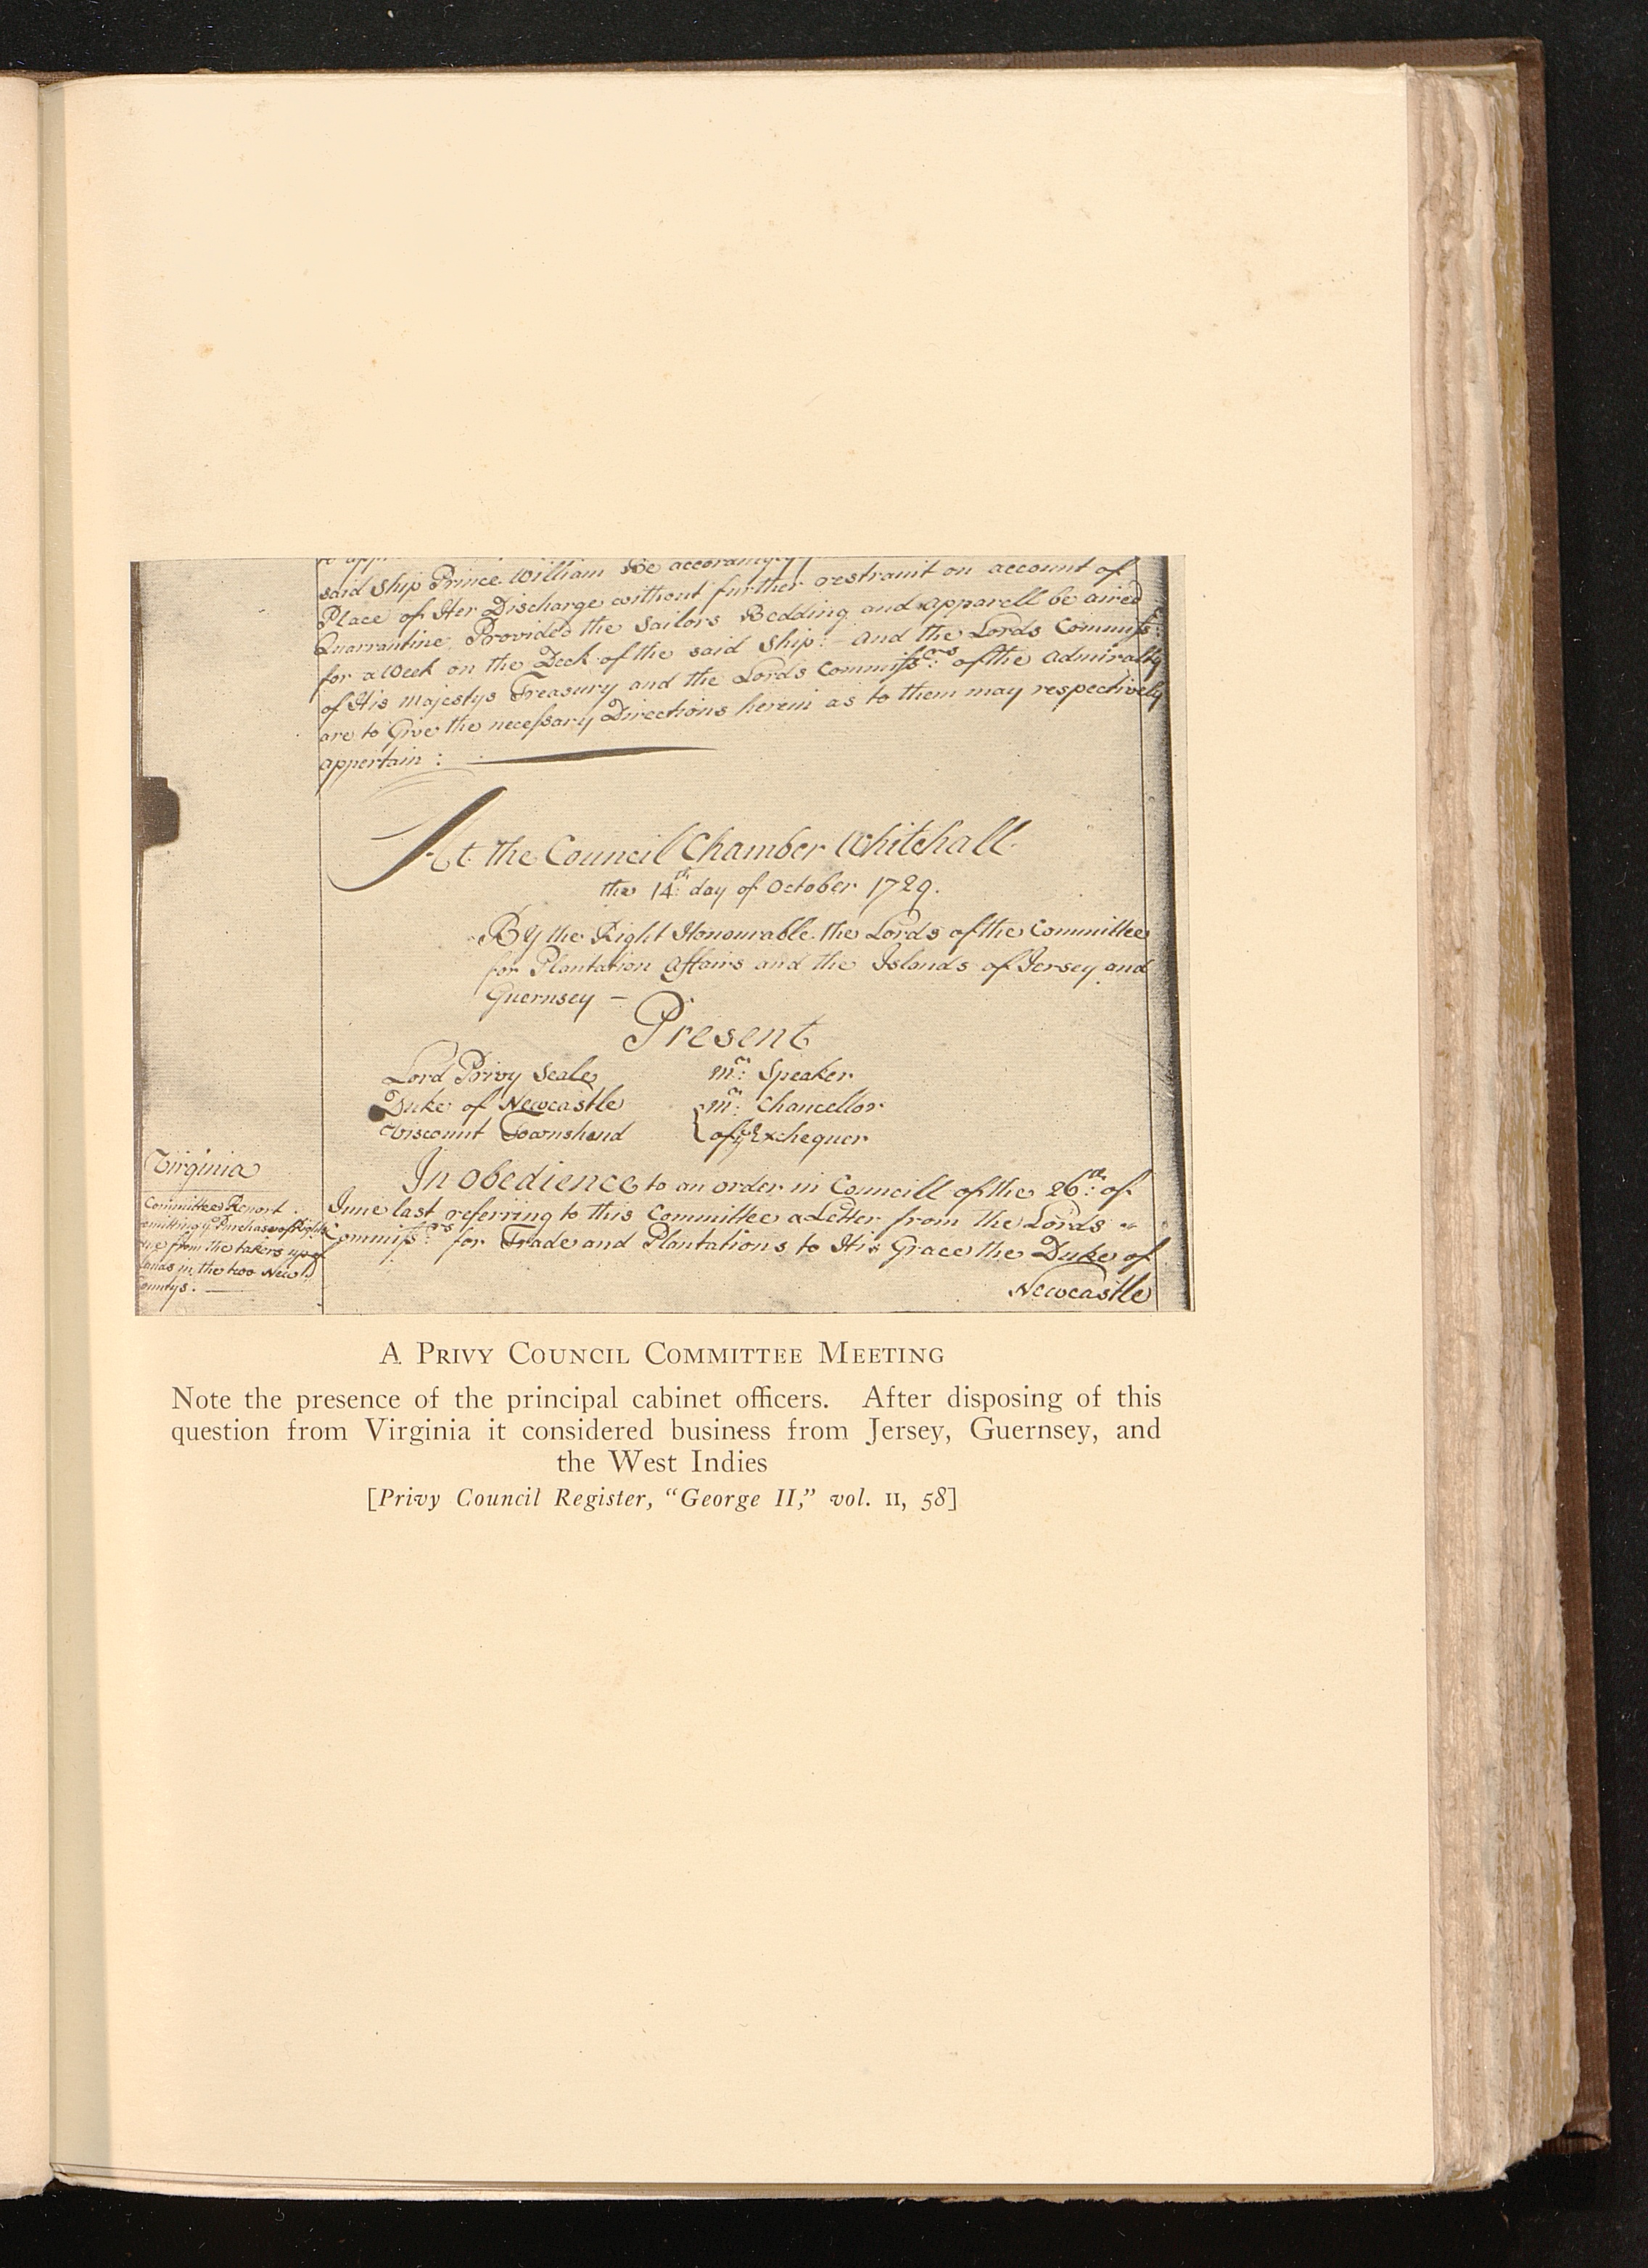 said Ship Prince William be accordingly
Place of Her Discharge without further restraint on account of
Quarrantine, Provided the Sailors Bedding and apparell be aired
for a Week on the Deck of the said Ship: – And the Lords Commiss:
of His Majestys Treasury and the Lords Commiss:ers of the Admiralty
are to Give the necessary Directions herein as to them may respectively
appertain :
At the Council Chamber Whitehall
the 14th: day of October 1729.
By the Right Honourable the Lords of the Committee
for Plantation Affairs and the Islands of Jersey and
Guernsey –
Present
Lord Privy Seale Mr: Speaker
Duke of Newcastle Mr: Chancellor
Viscount Townshend of ye Exchequer
Virginia
Committee Report
emitting ye Purchase of Rights
due from the takers up of
Lands in the two New
Countys.
In Obedience to an order in Councill of the 26th: of
June last referring to this Committee a Letter from the Lords
Commiss:ers for Trade and Plantations to His Grace the Duke of
Newcastle
A Privy Council Committee Meeting
Note the presence of the principal cabinet officers. After disposing of this
question from Virginia it considered business from Jersey, Guernsey, and
the West Indies
[Privy Council Register, “George II,” vol. II, 58]